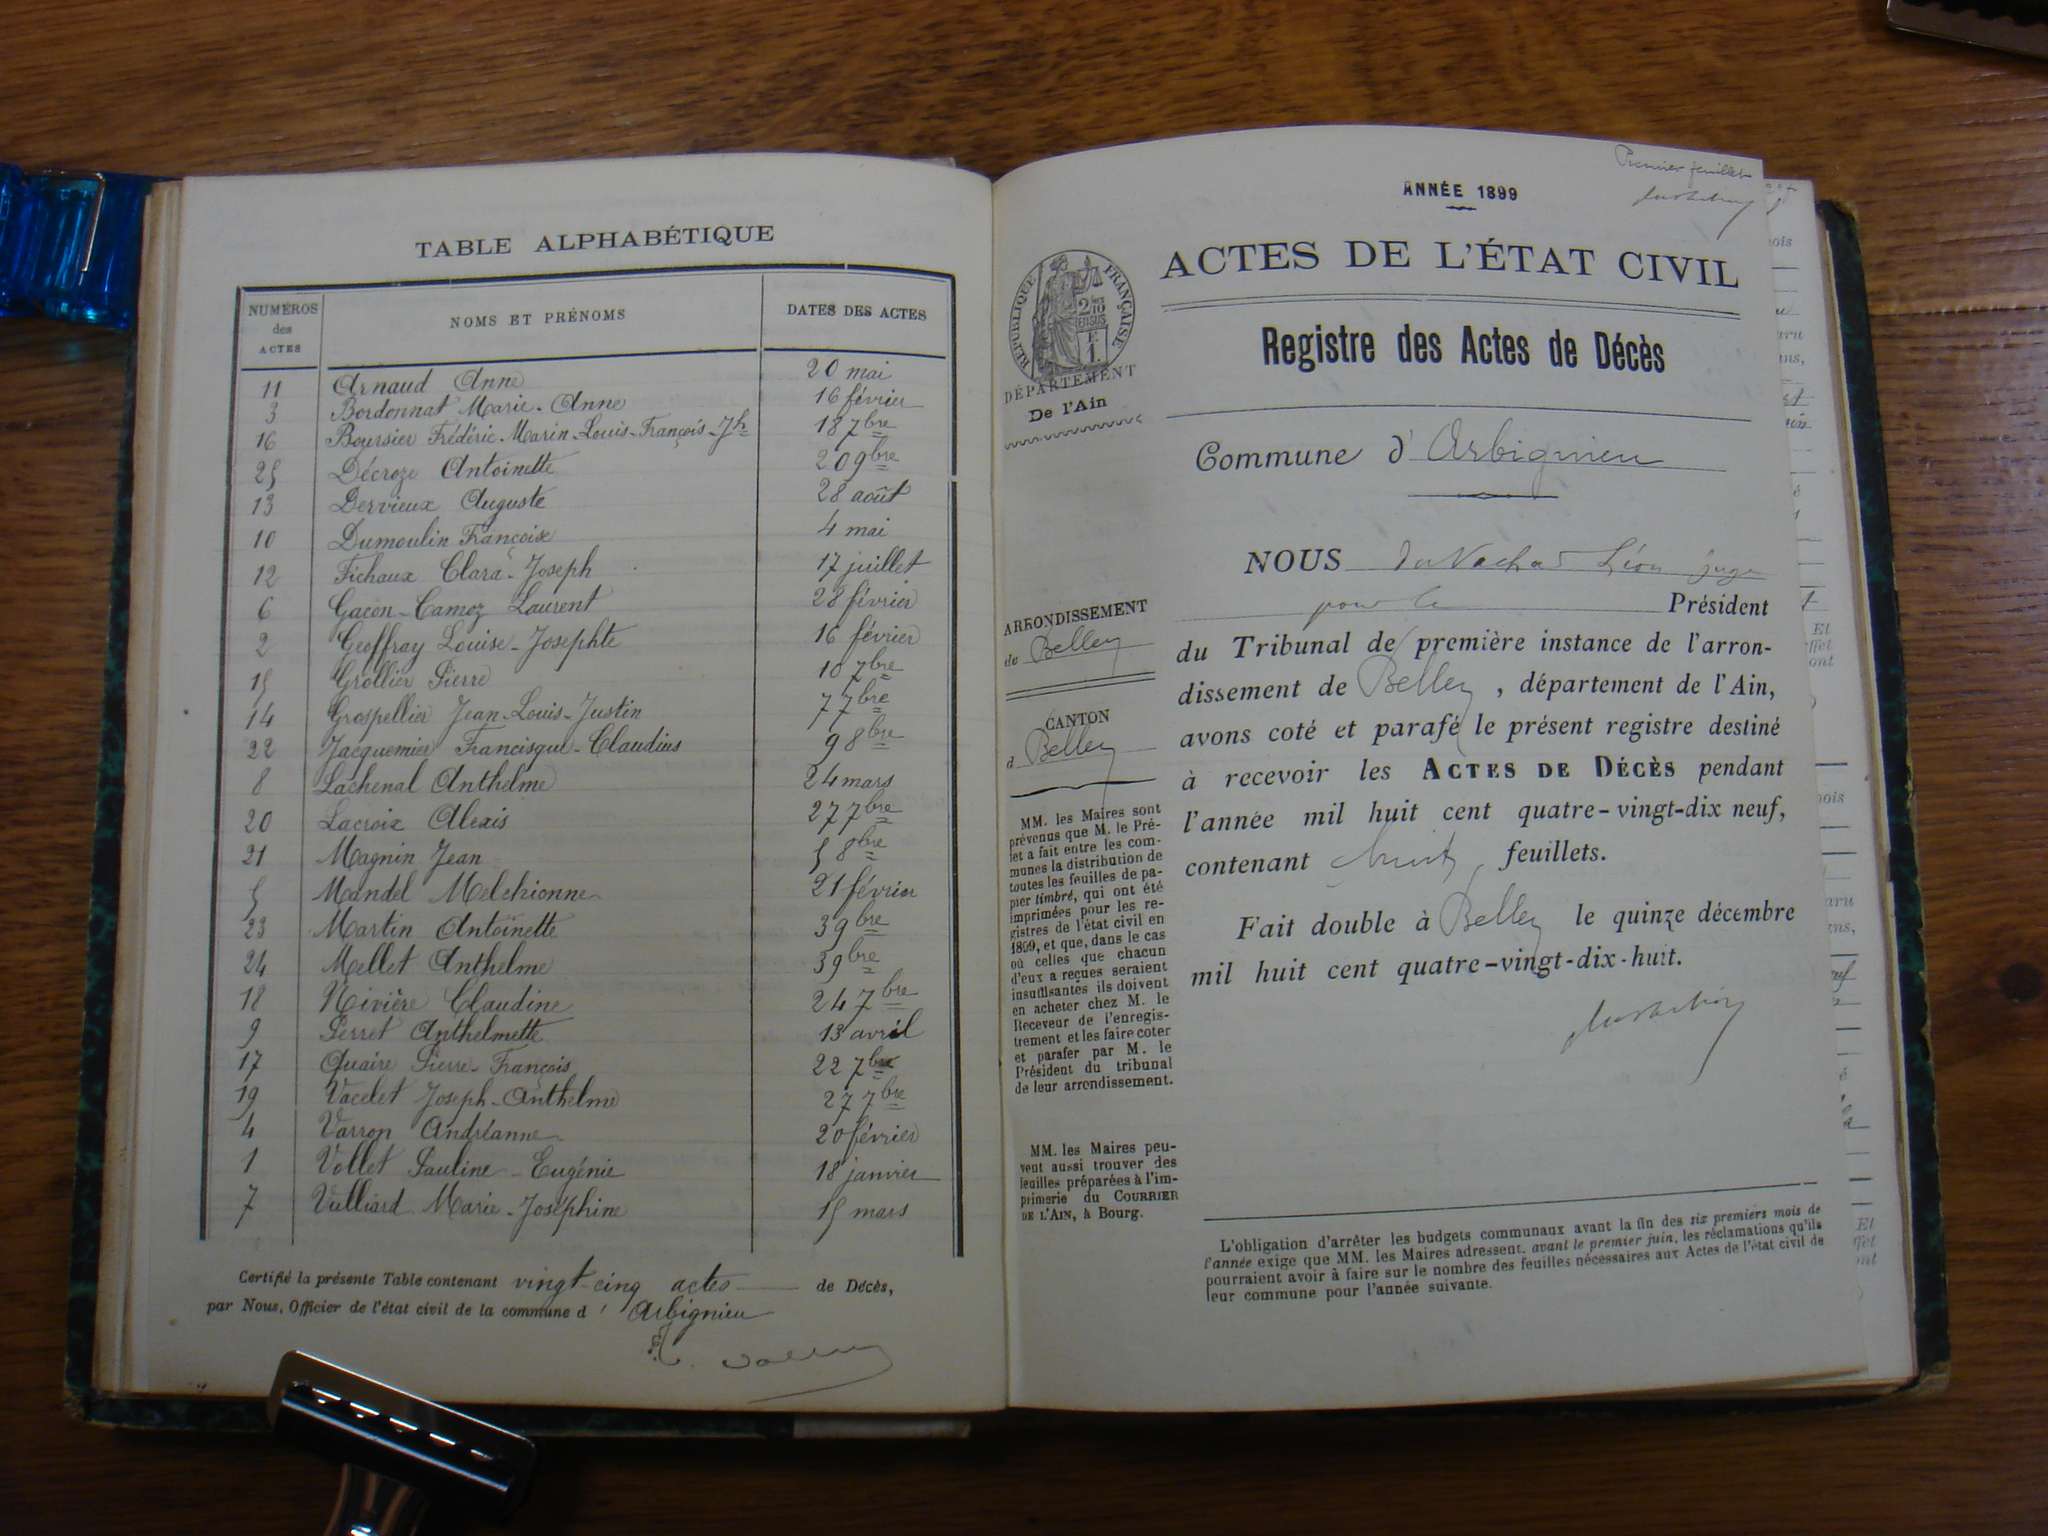 TABLE ALPHABÉTIQUE
NUMÉROS des ACTES | NOMS ET PRÉNOMS | DATES DES ACTES
11 Arnaud Anne 20 mai
3 Bordonnat Marie-Anne 16 février
16 Boursier Frédéric-Marin-Louis-François-Jh 18 7bre
25 Décroze Antoinette 20 9bre
13 Dervieux Auguste 28 août
10 Dumoulin Françoise 4 mai
12 Fichaux Clara-Joseph 17 juillet
6 Gacon-Camoz Laurent 28 février
2 Geoffray Louise-Josephte 16 février
15 Grollier Pierre 10 7bre
14 Grospellier Jean-Louis-Justin 7 7bre
22 Jacquemier Francisque-Claudius 9 8bre
8 Lachenal Anthelme 24 mars
20 Lacroix Alexis 27 7bre
21 Magnin Jean 5 8bre
5 Mandel Melchionne 21 février
23 Martin Antoinette 3 9bre
24 Mellet Anthelme 3 9bre
18 Nivière Claudine 24 7bre
9 Perret Anthelmette 13 avril
17 Quaire Pierre-François 22 7bre
19 Vacelet Joseph-Anthelme 27 7bre
4 Varron Andréanne 20 février
1 Vollet Pauline-Eugénie 18 janvier
7 Vulliard Marie-Joséphine 15 mars
Certifié la présente Table contenant vingt-cinq actes de Décès,
par Nous, Officier de l'état civil de la commune d' Arbignieu
Premier feuillet
ANNÉE 1899
ACTES DE L'ÉTAT CIVIL
RÉPUBLIQUE FRANÇAISE
2/10 EN SUS
F. 1.
DÉPARTEMENT
De l'Ain
Registre des Actes de Décès
Commune d'Arbignieu
ARRONDISSEMENT
de Belley
CANTON
d Belley
MM. les Maires sont
prévenus que M. le Pré-
fet a fait entre les com-
munes la distribution de
toutes les feuilles de pa-
pier timbré, qui ont été
imprimées pour les re-
gistres de l'état civil en
1899, et que, dans le cas
où celles que chacun
d'eux a reçues seraient
insuffisantes ils doivent
en acheter chez M. le
Receveur de l'enregis-
trement et les faire coter
et parafer par M. le
Président du tribunal
de leur arrondissement.
MM. les Maires peu-
vent aussi trouver des
feuilles préparées à l'im-
primerie du COURRIER
DE L'AIN, à Bourg.
NOUS Léon juge
pour le Président
du Tribunal de première instance de l'arron-
dissement de Belley, département de l'Ain,
avons coté et parafé le présent registre destiné
à recevoir les ACTES DE DÉCÈS pendant
l'année mil huit cent quatre-vingt-dix neuf,
contenant huit feuillets.
Fait double à Belley le quinze décembre
mil huit cent quatre-vingt-dix-huit.
L'obligation d'arrêter les budgets communaux avant la fin des six premiers mois de
l'année exige que MM. les Maires adressent, avant le premier juin, les réclamations qu'ils
pourraient avoir à faire sur le nombre des feuilles nécessaires aux Actes de l'état civil de
leur commune pour l'année suivante.